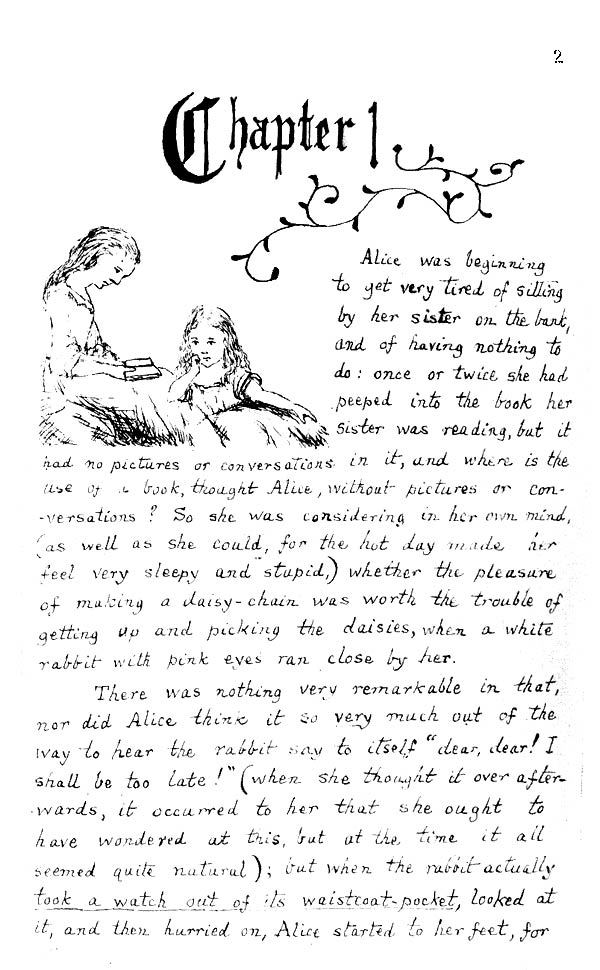 2
Chapter 1
Alice was beginning
to get very tired of sitting
by her sister on the bank,
and of having nothing to
do: once or twice she had
peeped into the book her
sister was reading, but it
had no pictures or conversations in it, and where is the
use of a book, thought Alice, without pictures or con-
-versations? So she was considering in her own mind,
(as well as she could, for the hot day made her
feel very sleepy and stupid,) whether the pleasure
of making a daisy-chain was worth the trouble of
getting up and picking the daisies, when a white
rabbit with pink eyes ran close by her.
There was nothing very remarkable in that,
nor did Alice think it so very much out of the
way to hear the rabbit say to itself "dear, dear! I
shall be too late!" (when she thought it over after-
wards, it occurred to her that she ought to
have wondered at this, but at the time it all
seemed quite natural); but when the rabbit actually
took a watch out of its waistcoat-pocket, looked at
it, and then hurried on, Alice started to her feet, for